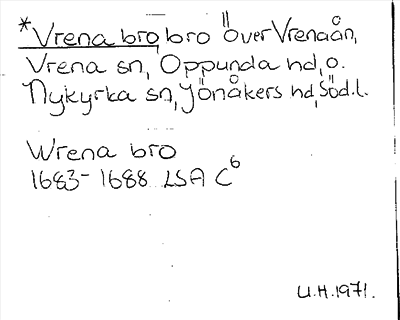 *Vrena bro bro över Vrenaån,
Vrena sn, Oppunda hd, o.
Nykyrka sn, Jönåkers hd, Söd.l.
Wrena bro
1683-1688 LSA C6
U.H. 1971.